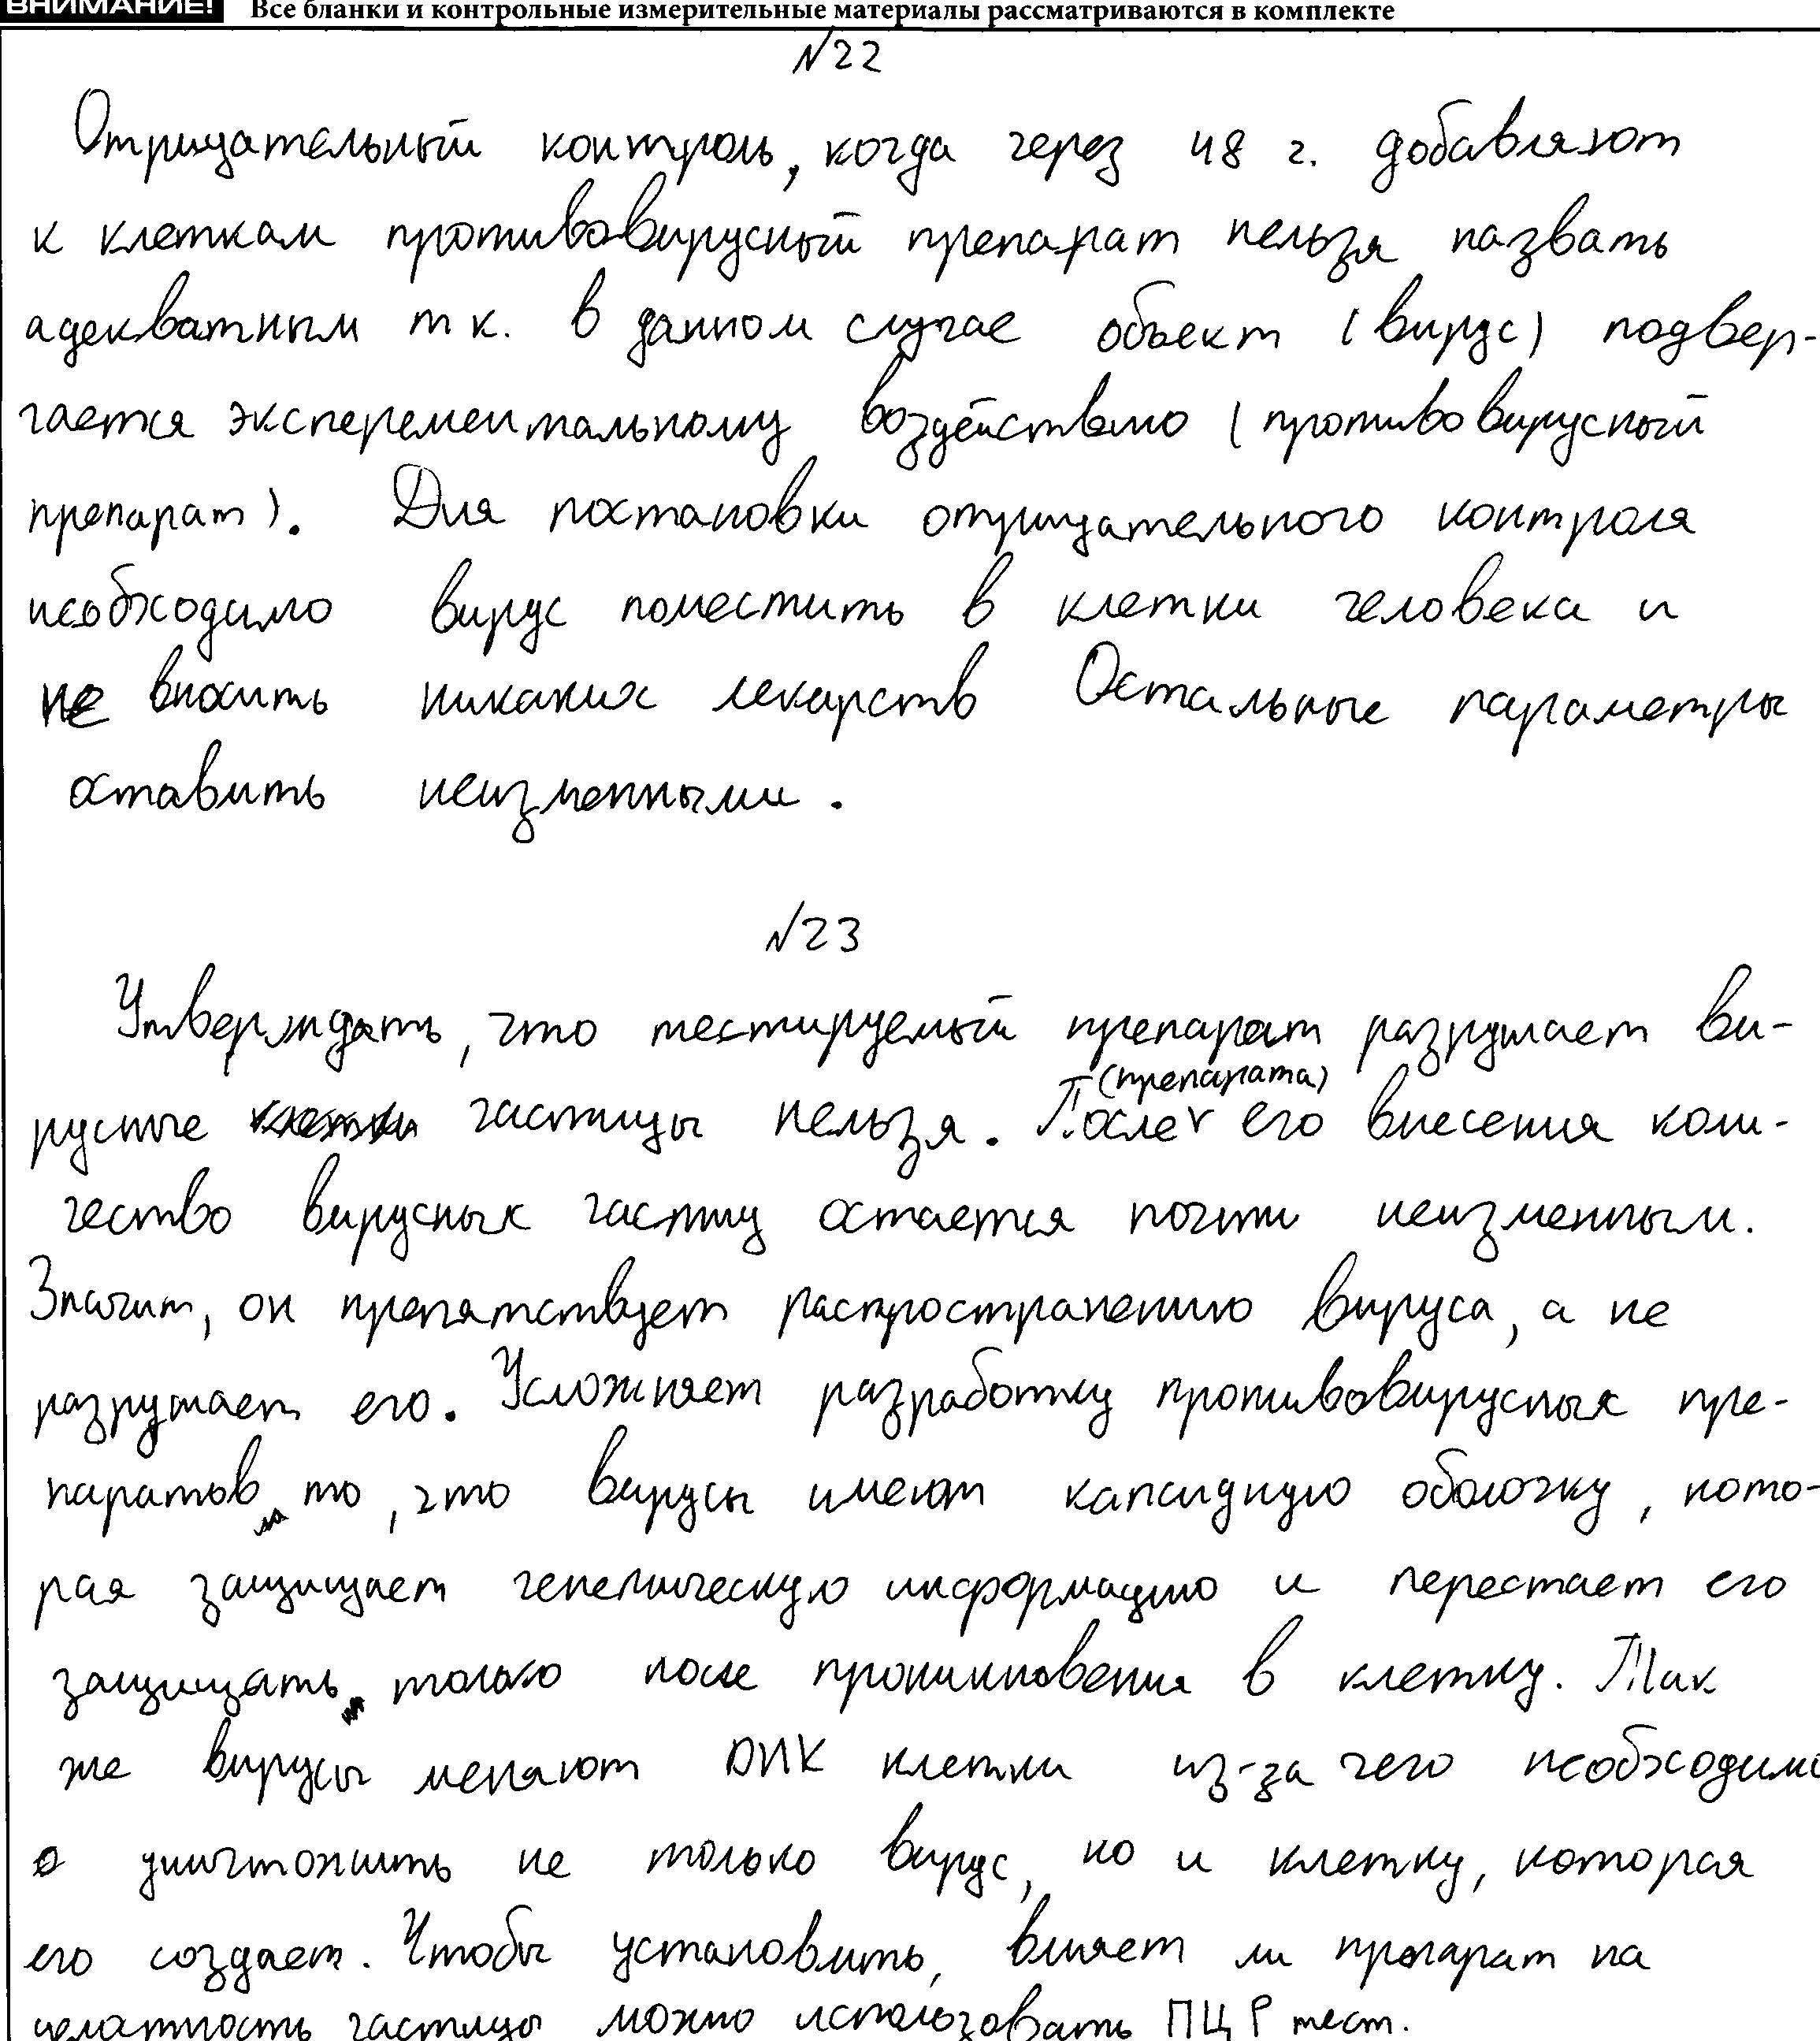 ВНИМАНИЕ! Все бланки и контрольные измерительные материалы рассматриваются в комплекте
№22
Отрицательный контроль, когда через 48 ч. добавляют
к клеткам противовирусный препарат нельзя назвать
адекватным т к. в данном случае объект (вирус) подвер-
гается эксперементальному воздействию (противовирусный
препарат). Для постановки отрицательного контроля
необходимо вирус поместить в клетки человека и
не вносить никаких лекарств Остальные параметры
оставить неизменными.
№23
Утверждать, что тестируемый препарат разрушает ви-
(препарата)
русные клетки частицы нельзя. После его внесения коли-
чество вирусных частиц остается почти неизменным.
Значит, он препятствует распространению вируса, а не
разрушает его. Усложняет разработку противовирусных пре-
паратов то, что вирусы имеют капсидную оболочку, кото-
рая защищает генетическую информацию и перестает его
защищать только после проникновения в клетку. Так
же вирусы меняют ДНК клетки из-за чего необходим
о уничтожить не только вирус, но и клетку, которая
его создает. Чтобы установить, влияет ли препарат на
целостность частицы можно использовать ПЦР тест.